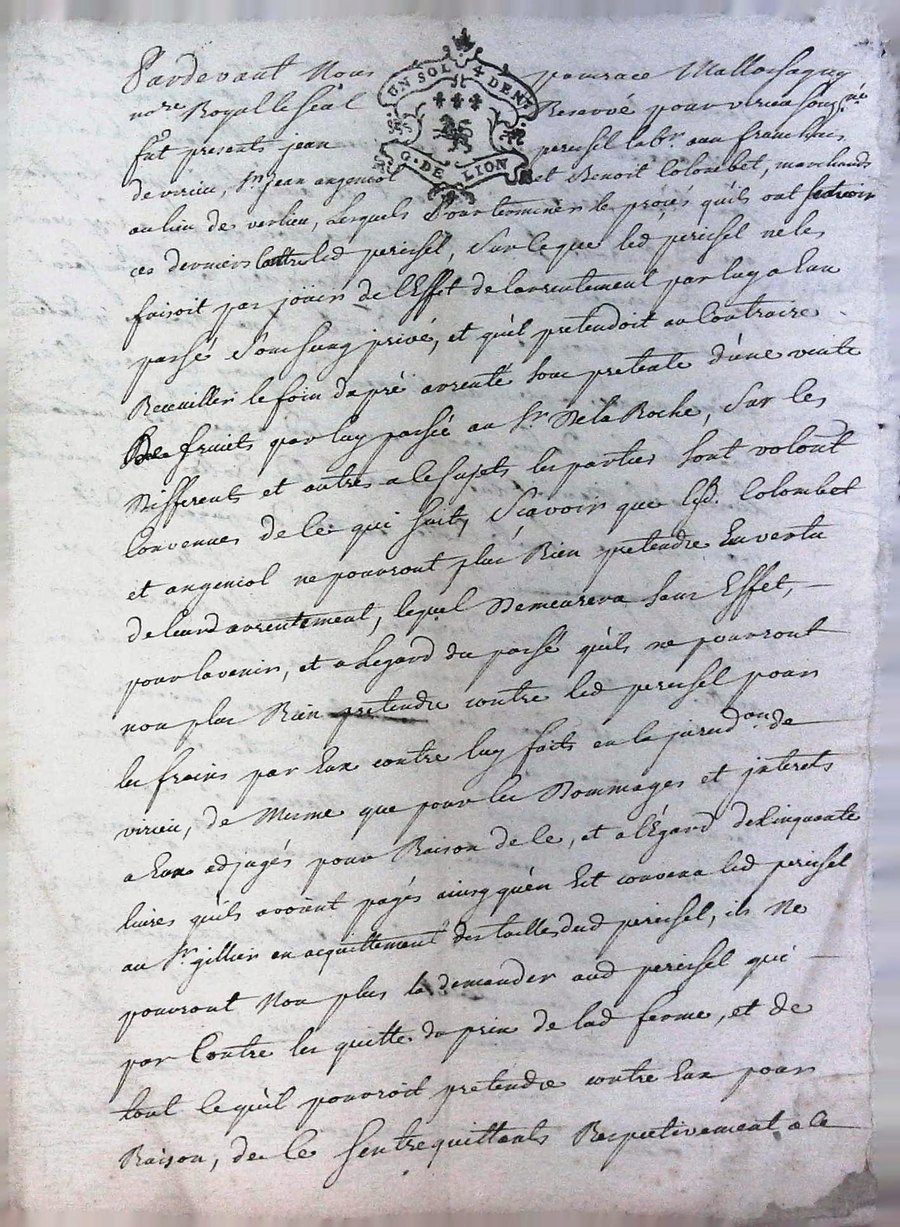 UN SOL 4 DEN.
G. DE LION
Pardevant Nous
nore Royal le Seal Reservé pour virieu soug.né
fut presents jean pericsel labr. aux franchises
de virieu, Sr. jean angeniol et Benoit Colombet, marchands
au lieu de verlieu, lesquels pour terminer le procés quils ont
ces derniers contre led pericsel, Sur ceque led pericsel ne les
faisoit pas joüir de l'Effet de larrentement par luy a Eux
passé Sous seing privé, et quil pretendoit au Contraire
Recueillir le foin du pré arrenté sous pretexte d'une vente
de fruits par luy passée au Sr. Dela Roche, Sur les
Differents et autres a ce Sujets les parties Sont volont
Convenues de ce qui suit, Sçavoir que lesd. Colombet
et angeniol ne pourront plus Rien pretendre En vertu
de leurd arrentement, lequel Demeurera sans Effet,
pour lavenir, et a legard du passé quils ne pourront
non plus Rien pretendre contre led pericsel pour
les frais par Eux contre luy faits en la jurisdon de
virieu, de Mesme que pour les Dommages et interets
a Eux adjugés pour Raison de ce, et a l'Egard de Cinquante
livres quils avoient payés ainsy qu'en Est convenu led pericsel
au Sr. gillier en acquittement des tailles dud pericsel, ils Ne
pouront Non plus la demander aud pericsel qui
par Contre les quitte du prix de lad ferme, et de
tout ce quil pouvoit pretendre contre Eux pour
Raison, de ce Sentrequittants Respectivement a ce